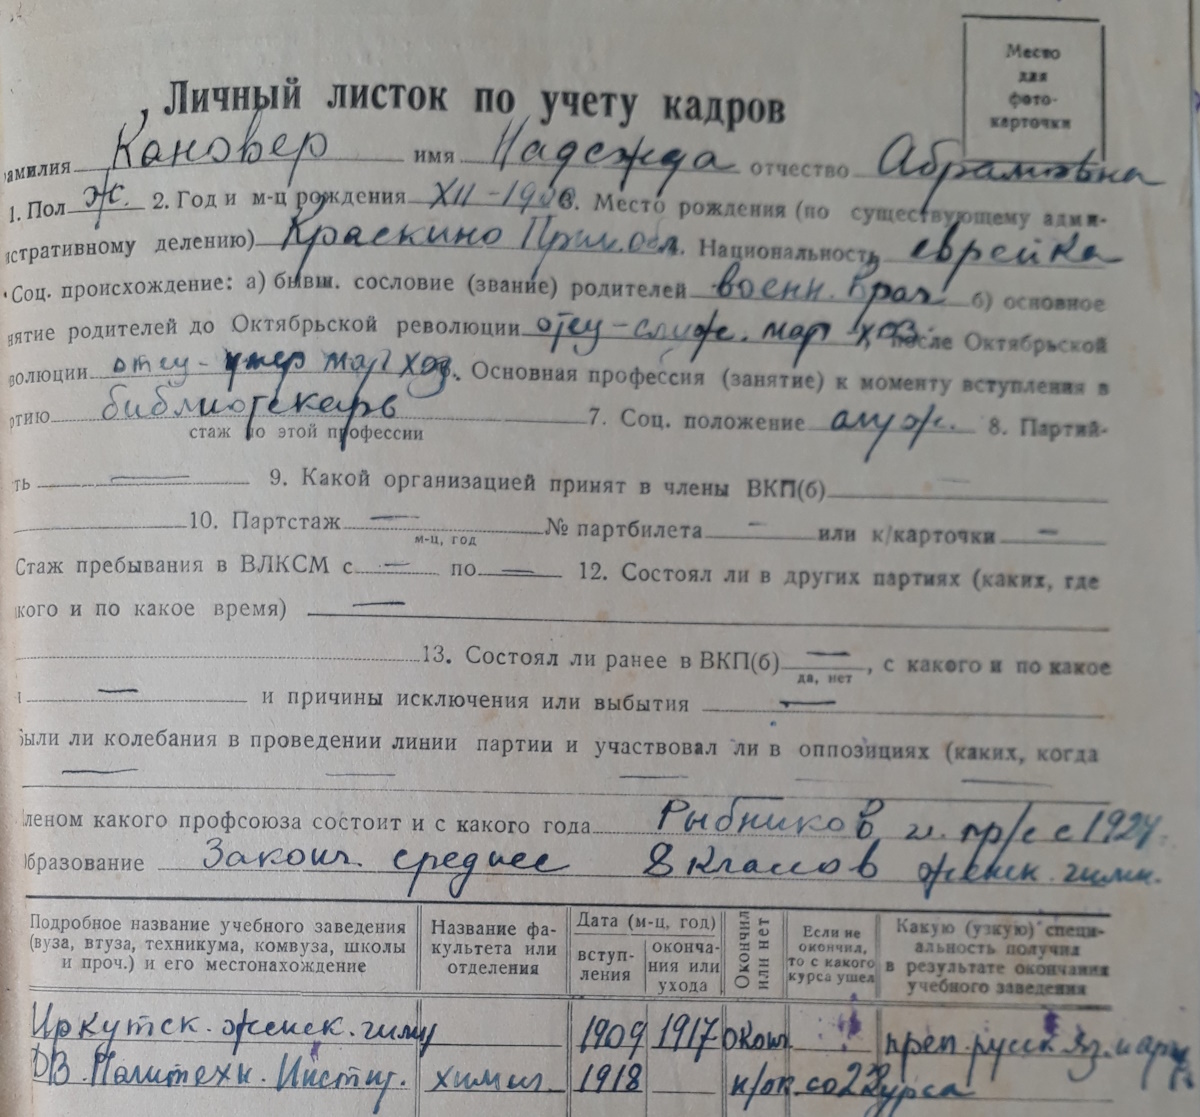 Место
для
фото-
карточки
Личный листок по учету кадров
амилия Кановер имя Надежда отчество Абрамовна
1. Пол ж. 2. Год и м-ц рождения XII-190 3. Место рождения (по существующему адми-
истративному делению) Краскино Прим обл. Национальность еврейка
Соц. происхождение: а) бывш. сословие (звание) родителей военн. врач б) основное
нятие родителей до Октябрьской революции отец-служ. мать дом. хоз. после Октябрьской
волюции отец-умер мать дом. хоз. Основная профессия (занятие) к моменту вступления в
ртию библиотекарь 7. Соц. положение служ. 8. Партий-
стаж по этой профессии
ть — 9. Какой организацией принят в члены ВКП(б)
10. Партстаж — № партбилета — или к/карточки —
м-ц, год
Стаж пребывания в ВЛКСМ с — по — 12. Состоял ли в других партиях (каких, где
кого и по какое время) —
13. Состоял ли ранее в ВКП(б) — , с какого и по какое
да, нет
— и причины исключения или выбытия —
Были ли колебания в проведении линии партии и участвовал ли в оппозициях (каких, когда
— — — —
Членом какого профсоюза состоит и с какого года Рыбников с 192
Образование Законч. среднее 8 классов женск. гимн.
Подробное название учебного заведения (вуза, втуза, техникума, комвуза, школы и проч.) и его местонахождение
Название фа-культета или отделения
Дата (м-ц, год)
вступ-ления
оконча-ния или ухода
Окончил или нет
Если не окончил, то с какого курса ушел
Какую (узкую) специ-альность получил в результате окончания учебного заведения
Иркутск. женск. гимн 1909 1917 окон. преп. русск яз. и
ДВ. Политехн. Инстит. химич 1918 н/ок со 2 курса